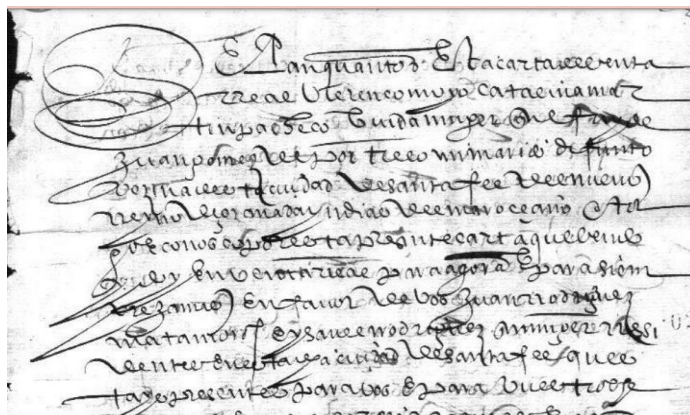 Sepan quantos Esta carta de venta
rreal vieren como yo catalina mar
tin pacheco biuda muger que fui de
Juan gomez del portillo mi marido difunto
vezina desta ciudad de santa fee del nuevo
rreyno de granada yndias del mar oceano otor
go e conosco por esta presente carta que bendo
E doy En venta rreal para agora E para siem
pre xamas En fauor de vos Juan rrodriguez
matamoros E ysauel rodriguez su muger rresi
dentes En esta ciudad de santa fee que es
tays presentes para vos E para vuestros